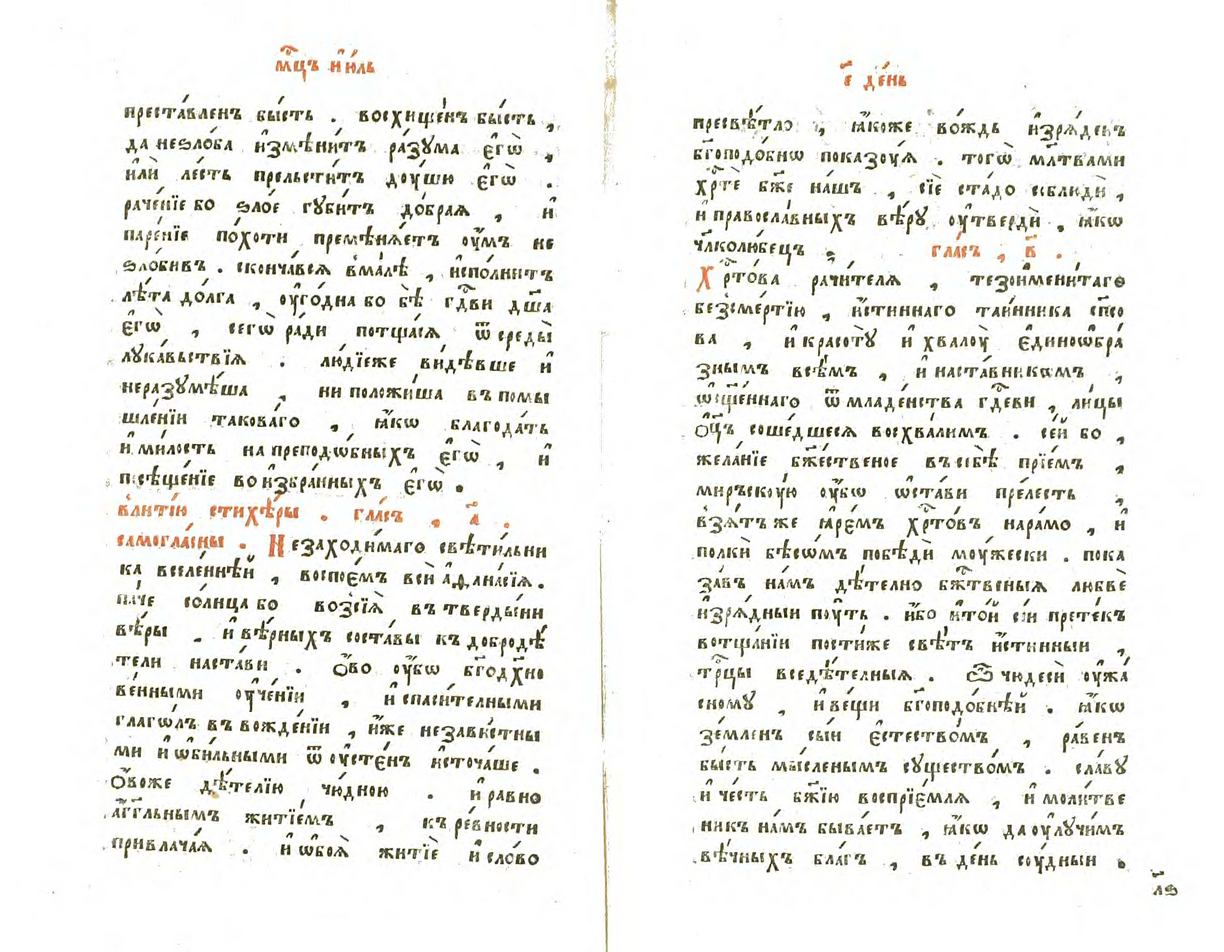 мⷭ҇цъ и҆ю҆ль
преста́вленъ бы́сть . восхище́нъ бы́сть ,
да неѕло́ба и҆змѣни́тъ ра́зума є҆гѡ̀ ,
и҆лѝ ле́сть прельсти́тъ доу́шю є҆гѡ̀ .
раче́нїе бо ѕло́е гꙋ́битъ до́браѧ , и҆
паре́нїе по́хоти премѣнѧ́етъ оу҆́мъ не
ѕло́бивъ . сконча́всѧ вма́лѣ , и҆спо́лнитъ
лѣ́та до́лга , оу҆го́дна бо бѣ̀ гдⷭ҇ви дш҃а
є҆гѡ̀ , сегѡ̀ ра́ди потща́сѧ , ѿ среды̀
лꙋка́вьствїѧ . лю́дїеже ви́дѣвше и҆
неразꙋмѣ́ша , ни положи́ша въ помы
шле́нїи такова́го , ꙗ҆́кѡ благода́ть
и҆ ми́лость на преподо́бныхъ є҆гѡ̀ , и҆
посѣще́нїе во и҆збра́нныхъ є҆гѡ̀ .
влитїю̀ стихѣ́ры . гла́съ , а҃ .
самогла́сны . Незаходи́маго свѣти́льни
ка вселе́ннѣй , воспое́мъ всѝ а҆ѳана́сїѧ .
па́че со́лнца бо возсїѧ̀ въ тверды́ни
вѣ́ры , и҆ вѣ́рныхъ соста́вы къ добродѣ́
тели наста́ви . Ѻ҆́во оу҆́бѡ бг҃одх҃но
ве́нными оу҆че́нїи , и҆ спаси́телными
глаго́лъ въ вожде́нїи , и҆́же незави́стны
ми и҆ ѡ҆би́льными ѿ оу҆сте́нъ и҆сточа́ше .
Ѻ҆́воже дѣ́телїю чю́дною . и҆ равно
а҆́гг҃льнымъ житїе́мъ , къ ре́вности
привлача́ѧ . и҆ ѡ҆боѧ̀ житїѐ и҆ сло́во
є҃ де́нь
пресвѣ́тло , ꙗ҆́коже во́ждь и҆зрѧ́денъ
бг҃оподо́бнѡ показоу́ѧ . тогѡ̀ мл҃твами
хрⷭ҇тѐ бж҃е на́шъ , сїѐ ста́до соблюдѝ ,
и҆ правосла́вныхъ вѣ́рꙋ оу҆твердѝ , ꙗ҆́кѡ
чл҃колю́бецъ . гла́съ , в҃ .
Хрⷭ҇то́ва рачи́телѧ , тезоимени́таго
безсме́ртїю , и҆́стиннаго таи́нника сп҃со
ва , и҆ красотꙋ̀ и҆ хвалоу̀ є҆динообра́
знымъ всѣ́мъ , и҆ наста́вникѡмъ ,
ѡ҆сщ҃е́ннаго ѿ младе́нства гдⷭ҇еви , ли́цы
ѻ҆ц҃ъ соше́дшесѧ восхва́лимъ . се́й бо ,
жела́нїе бж҃е́ственое въ себѣ̀ прїе́мъ ,
ми́рьскоую оу҆́бѡ ѡ҆ста́ви пре́лесть ,
взѧ́тъ же ꙗ҆ре́мъ хрⷭ҇то́въ нара́мо , и҆
полки̑ бѣсѡ́мъ побѣдѝ моу́жески . пока
за́въ на́мъ дѣ́телно бжⷭ҇твеныѧ любвѐ
и҆зрѧ́дныи поу́ть . и҆́бо и҆ то́й сі́и прете́къ
вотща́нїи пости́же свѣ́тъ и҆́стинныи ,
трⷪ҇цы вседѣ́телныѧ . Ѽ чюдесѝ оу҆жа́
сномꙋ , и҆ ве́щи бг҃оподо́бнѣй . ꙗ҆́кѡ
зе́мленъ сы́и є҆стество́мъ , ра́венъ
бы́сть мы́сленымъ сꙋщество́мъ . сла́вꙋ
и҆ че́сть бж҃їю воспрїе́млѧ , и҆ моли́тве
никъ на́мъ быва́етъ , ꙗ҆́кѡ да оу҆лꙋчи́мъ
вѣ́чныхъ бла́гъ , въ де́нь соу́дныи .
л҃ѕ